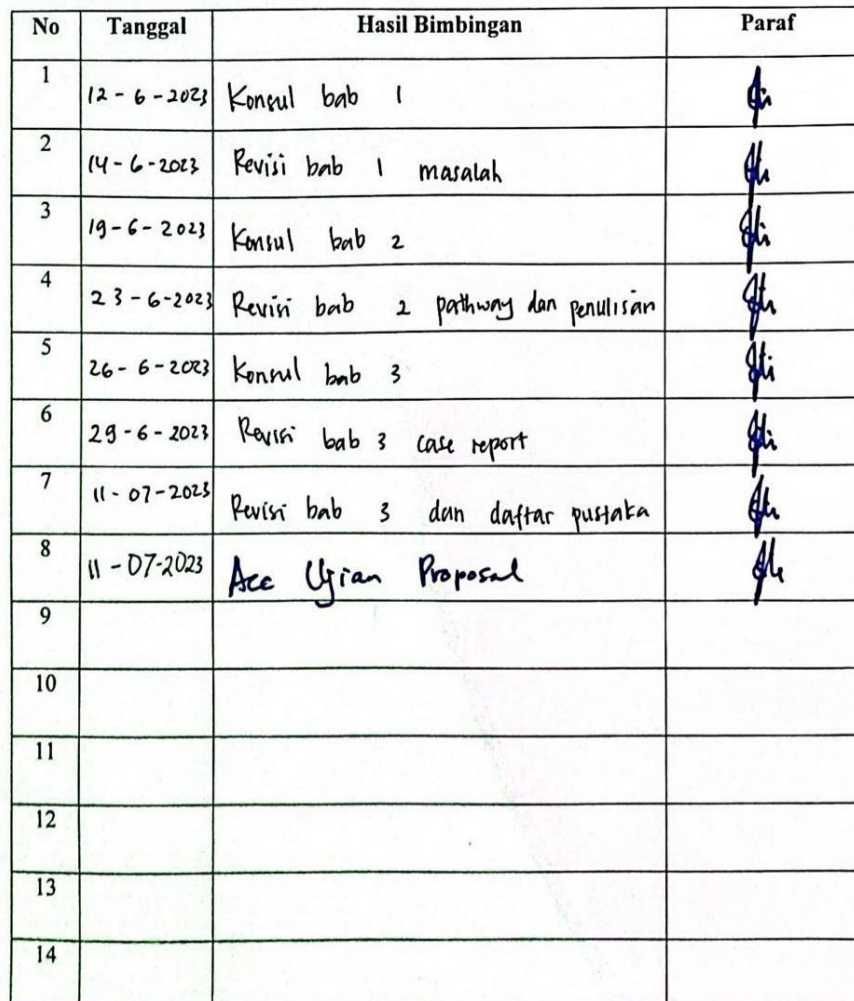 No Tanggal Hasil Bimbingan Paraf
1 12-6-2023 Konsul bab 1
2 14-6-2023 Revisi bab 1 masalah
3 19-6-2023 Konsul bab 2
4 23-6-2023 Revisi bab 2 pathway dan penulisan
5 26-6-2023 Konsul bab 3
6 29-6-2023 Revisi bab 3 case report
7 11-07-2023 Revisi bab 3 dan daftar pustaka
8 11-07-2023 Acc Ujian Proposal
9
10
11
12
13
14